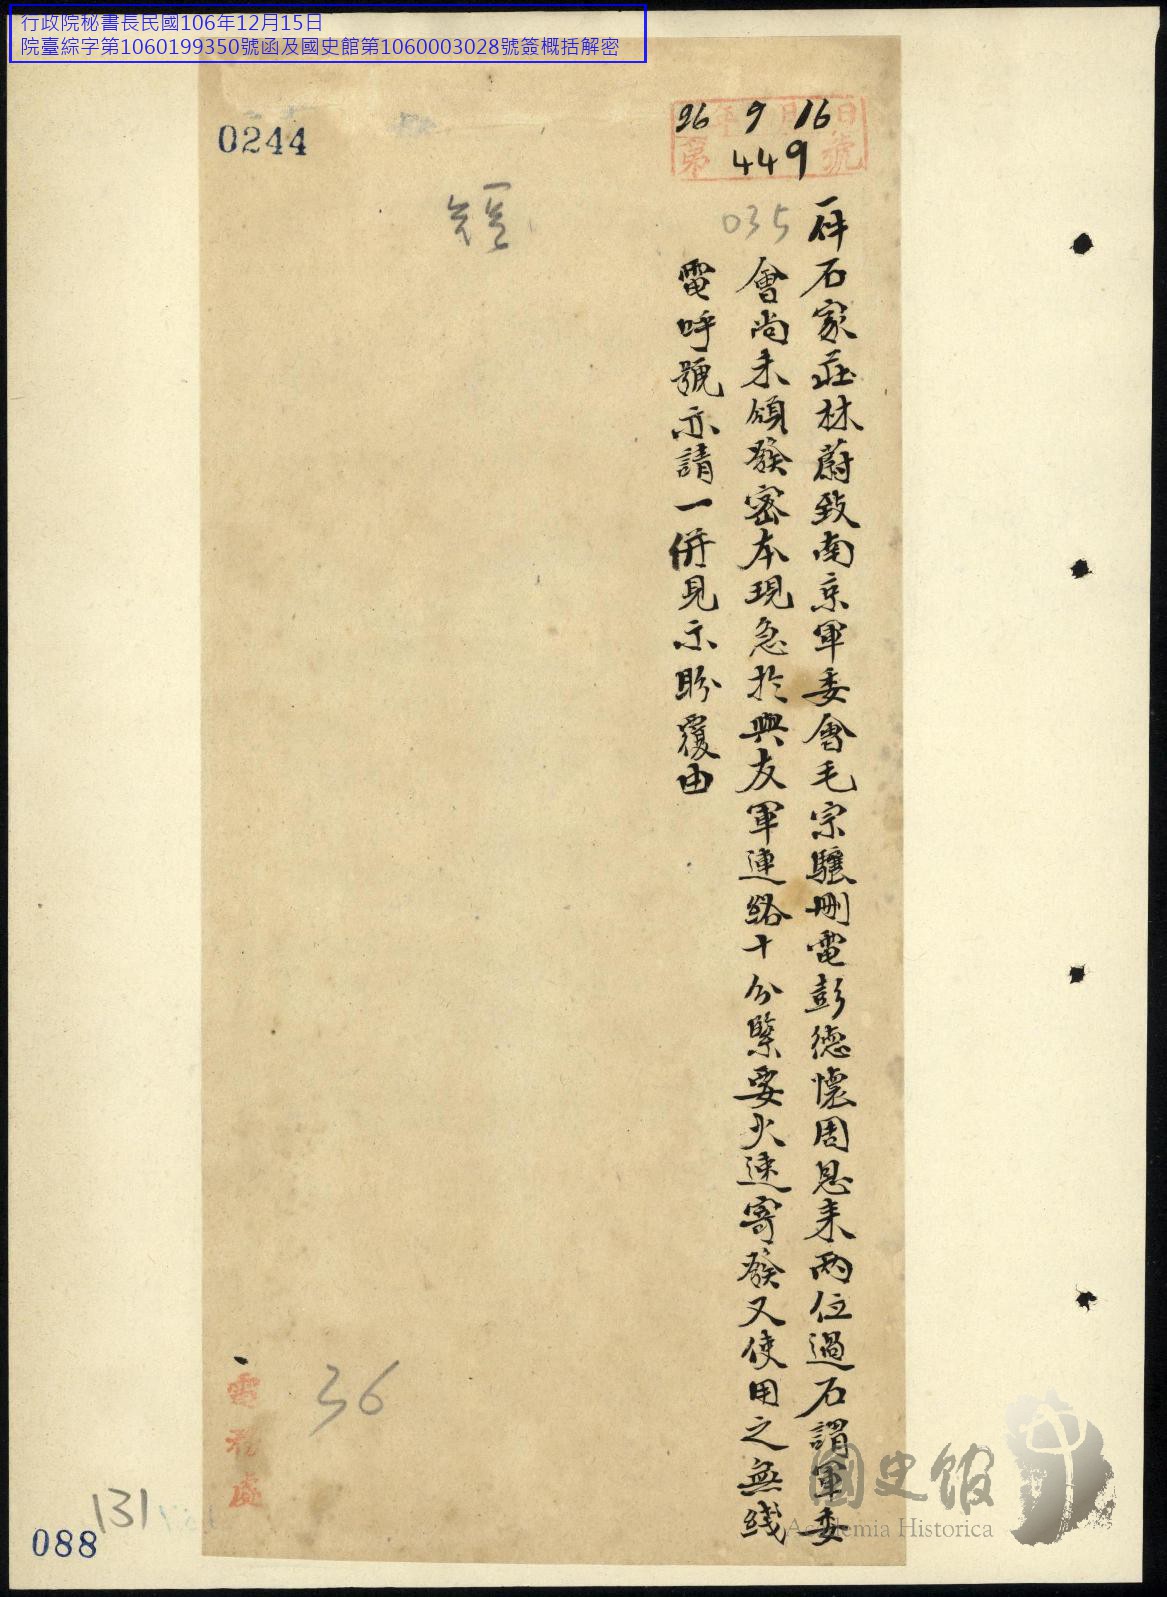 行政院秘書長民國106年12月15日
院臺綜字第1060199350號函及國史館第1060003028號簽概括解密
0244
26年9月16日
第449號
035
一件石家莊林蔚致南京軍委會毛宗驤刪電彭德懷周恩來兩位過石謂軍委
會尚未頒發密本現急於與友軍連絡十分緊要火速寄發又使用之無线
電呼號亦請一併見示盼覆由
36
電務處
131
088
國史館
Academia Historica